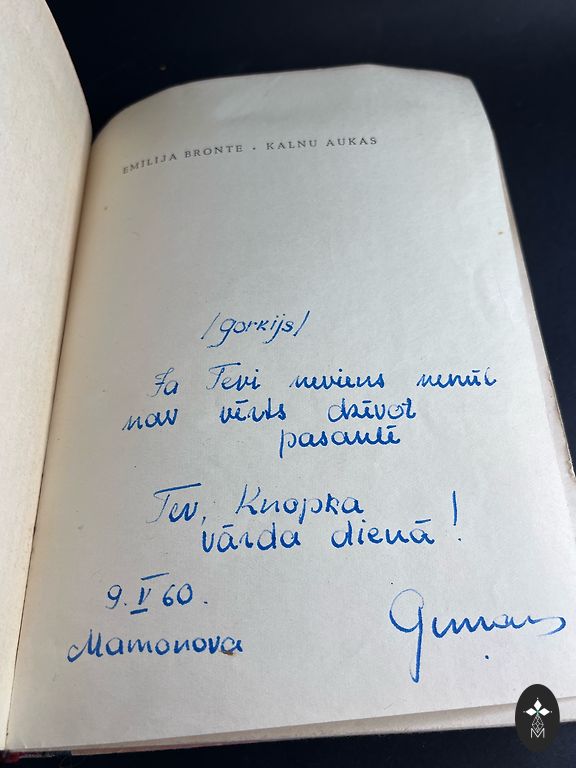 EMILIJA BRONTE • KALNU AUKAS
/gorkijs/
Ja Tevi neviens nemīl
nav vērts dzīvot
pasaulē
Tev, Knopka
vārda dienā!
9. V 60.
Mamonova